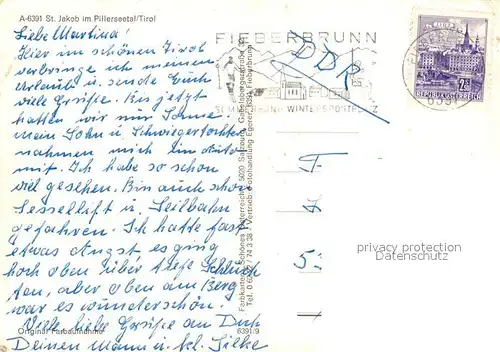 A-6391 St. Jakob im Pillerseetal/Tirol
Liebe Martina!
Hier im schönen Tirol
verbringe ich meinen
Urlaub u. sende Euch
viele Grüße. Bis jetzt
hatten wir nur Sonne.
Mein Sohn u. Schwiegertochter
nahmen mich im Auto
mit. Ich habe so schon
viel gesehen. Bin auch schon
Sessellift u. Seilbahn
gefahren. Ich hatte fast
etwas Angst es ging
hoch oben über tiefe Schluch
ten, aber oben am Berg
war es wunderschön.
Viele liebe Grüße an Dich
Deinen Mann u. kl. Silke
Original Farbaufnahme
6391/9
FIEBERBRUNN
DDR
SOMMER- UND WINTERSPORTPLATZ
REPUBLIK ÖSTERREICH
privacy protection
Datenschutz